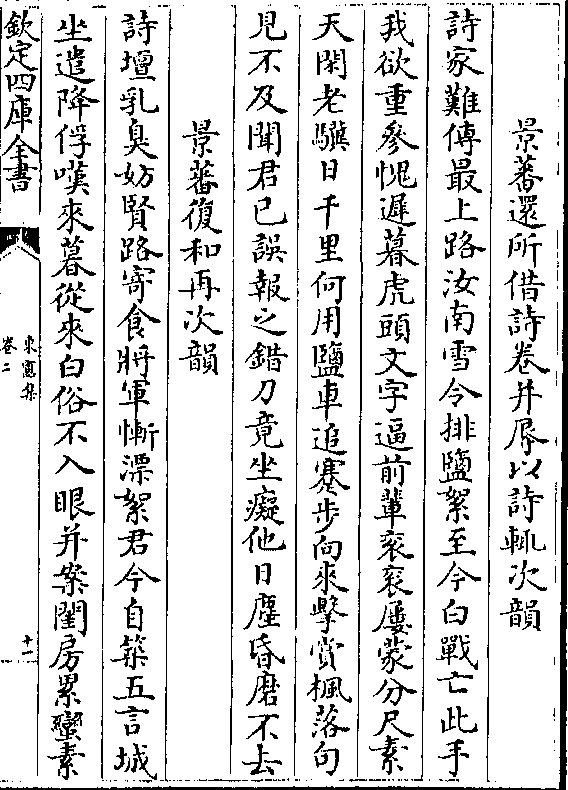 景蕃還所借詩卷并辱以詩輒次韻
詩家難傳最上路汝南雪令排鹽絮至今白戰亡此手
我欲重參愧遲暮虎頭文字逼前輩衮衮屢蒙分尺素
天閑老驥日千里何用鹽車追蹇步向來擊賞楓落句
見不及聞君已誤報之錯刀竟坐癡他日塵昏磨不去
景蕃復和再次韻
詩壇乳臭妨賢路寄食將軍慚漂絮君今自築五言城
坐遣降俘嘆來暮從來白俗不入眼并案閨房累蠻素
欽定四庫全書
東窻集
卷二
十一